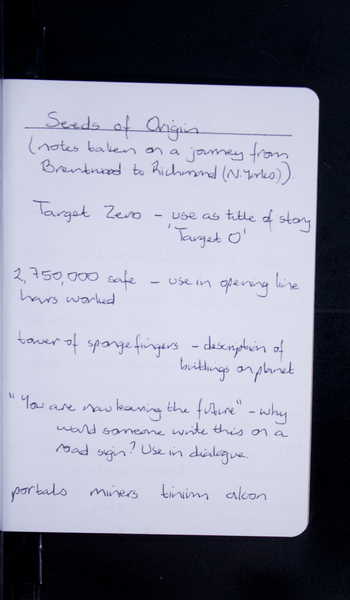 Seeds of Origin
(notes taken on a journey from
Brentwood to Richmond (N.Yorks)).
Target Zero - use as title of story
'Target O'
2,750,000 safe - use in opening line
hours worked
tower of sponge fingers - description of
buildings on planet
"You are now leaving the future" - why
would someone write this on a
road sign? Use in dialogue.
portals miners tinim alcon